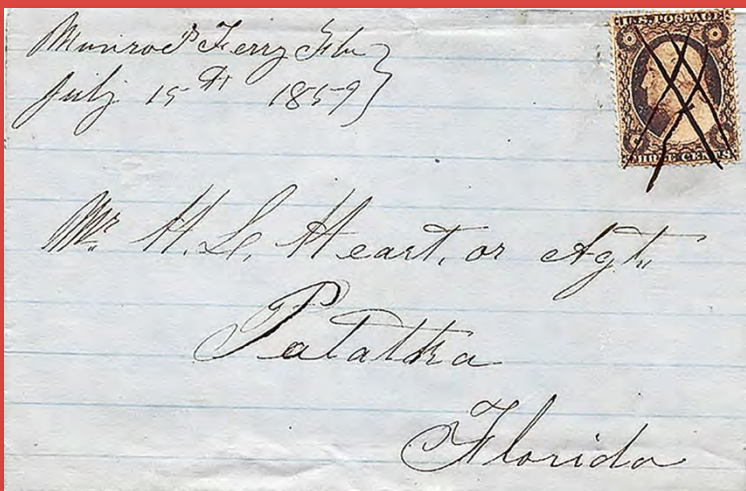 Munroe's Ferry Fla
July 15th 1859
U.S. POSTAGE
THREE CENTS
Mr. H. L. Heart, or Agt.
Palatka
Florida